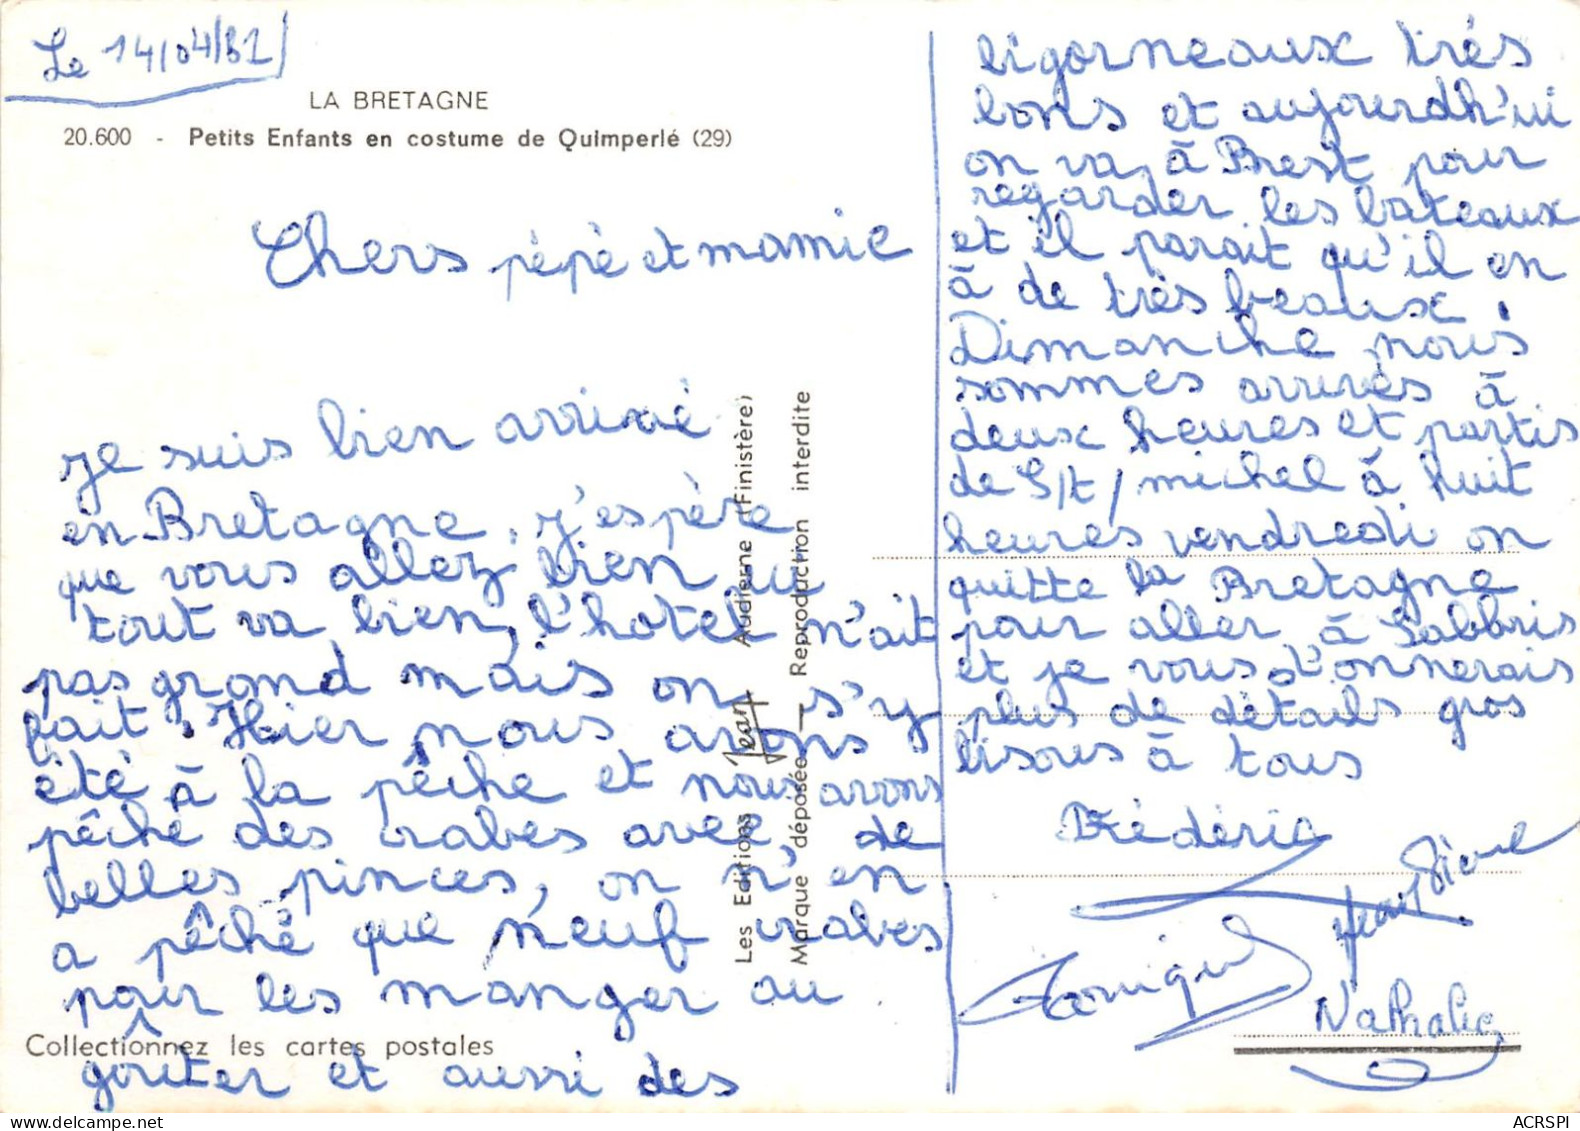 Le 14/04/81
LA BRETAGNE
20.600 - Petits Enfants en costume de Quimperlé (29)
Chers pépé et mamie
je suis bien arrivé
en Bretagne, j'espère
que vous allez bien ici
tout va bien, l'hotel n'ait
pas grand mais on s'y
fait. Hier nous avons
été à la pêche et nous avons
pêché des crabes avec de
belles pinces, on n'en
a pêché que neuf crabes
pour les manger au
goûter et aussi des
Collectionnez les cartes postales
Les Editions Jean Audierne (Finistère)
Marque déposée — Reproduction interdite
bigorneaux très
bons et aujourdh'ui
on va à Brest pour
regarder les bateaux
et il parait qu'il on
à de très beaux.
Dimanche nous
sommes arrivés à
deux heures et partis
de S/t/michel à huit
heures vendredi on
quitte la Bretagne
pour aller à Salbris
et je vous donnerais
plus de détails gros
bisous à tous
Frédéric
Nathalie
ACRSPI